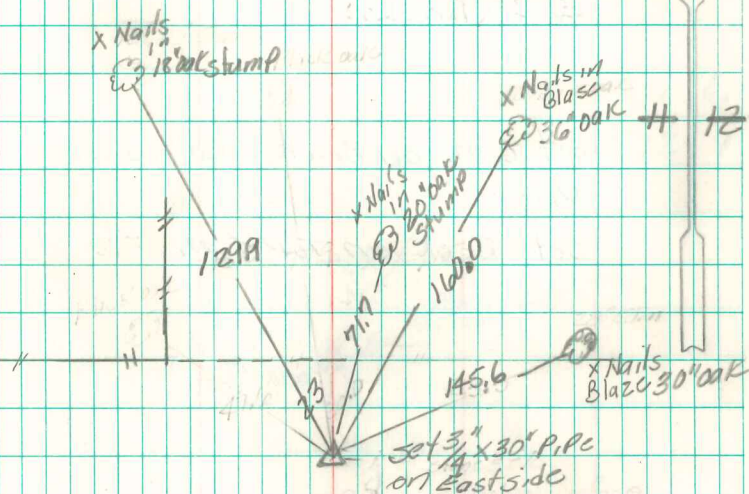 X Nails
in
18" oak stump
X Nails in
Blase
36" oak
11
12
X Nails
in
20" oak
stump
129.9
71.7
160.0
23
145.6
X Nails
Blaze 30" oak
set 3/4" x 30" Pipe
on Eastside